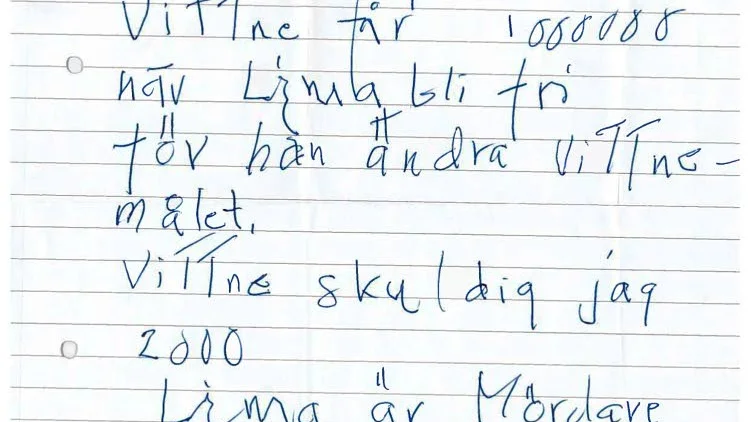 Vittne får 1000000
när Lizma bli fri
för han ändra Vittne-
målet.
Vittne skuldig jag
2000
Lizma är Mördare